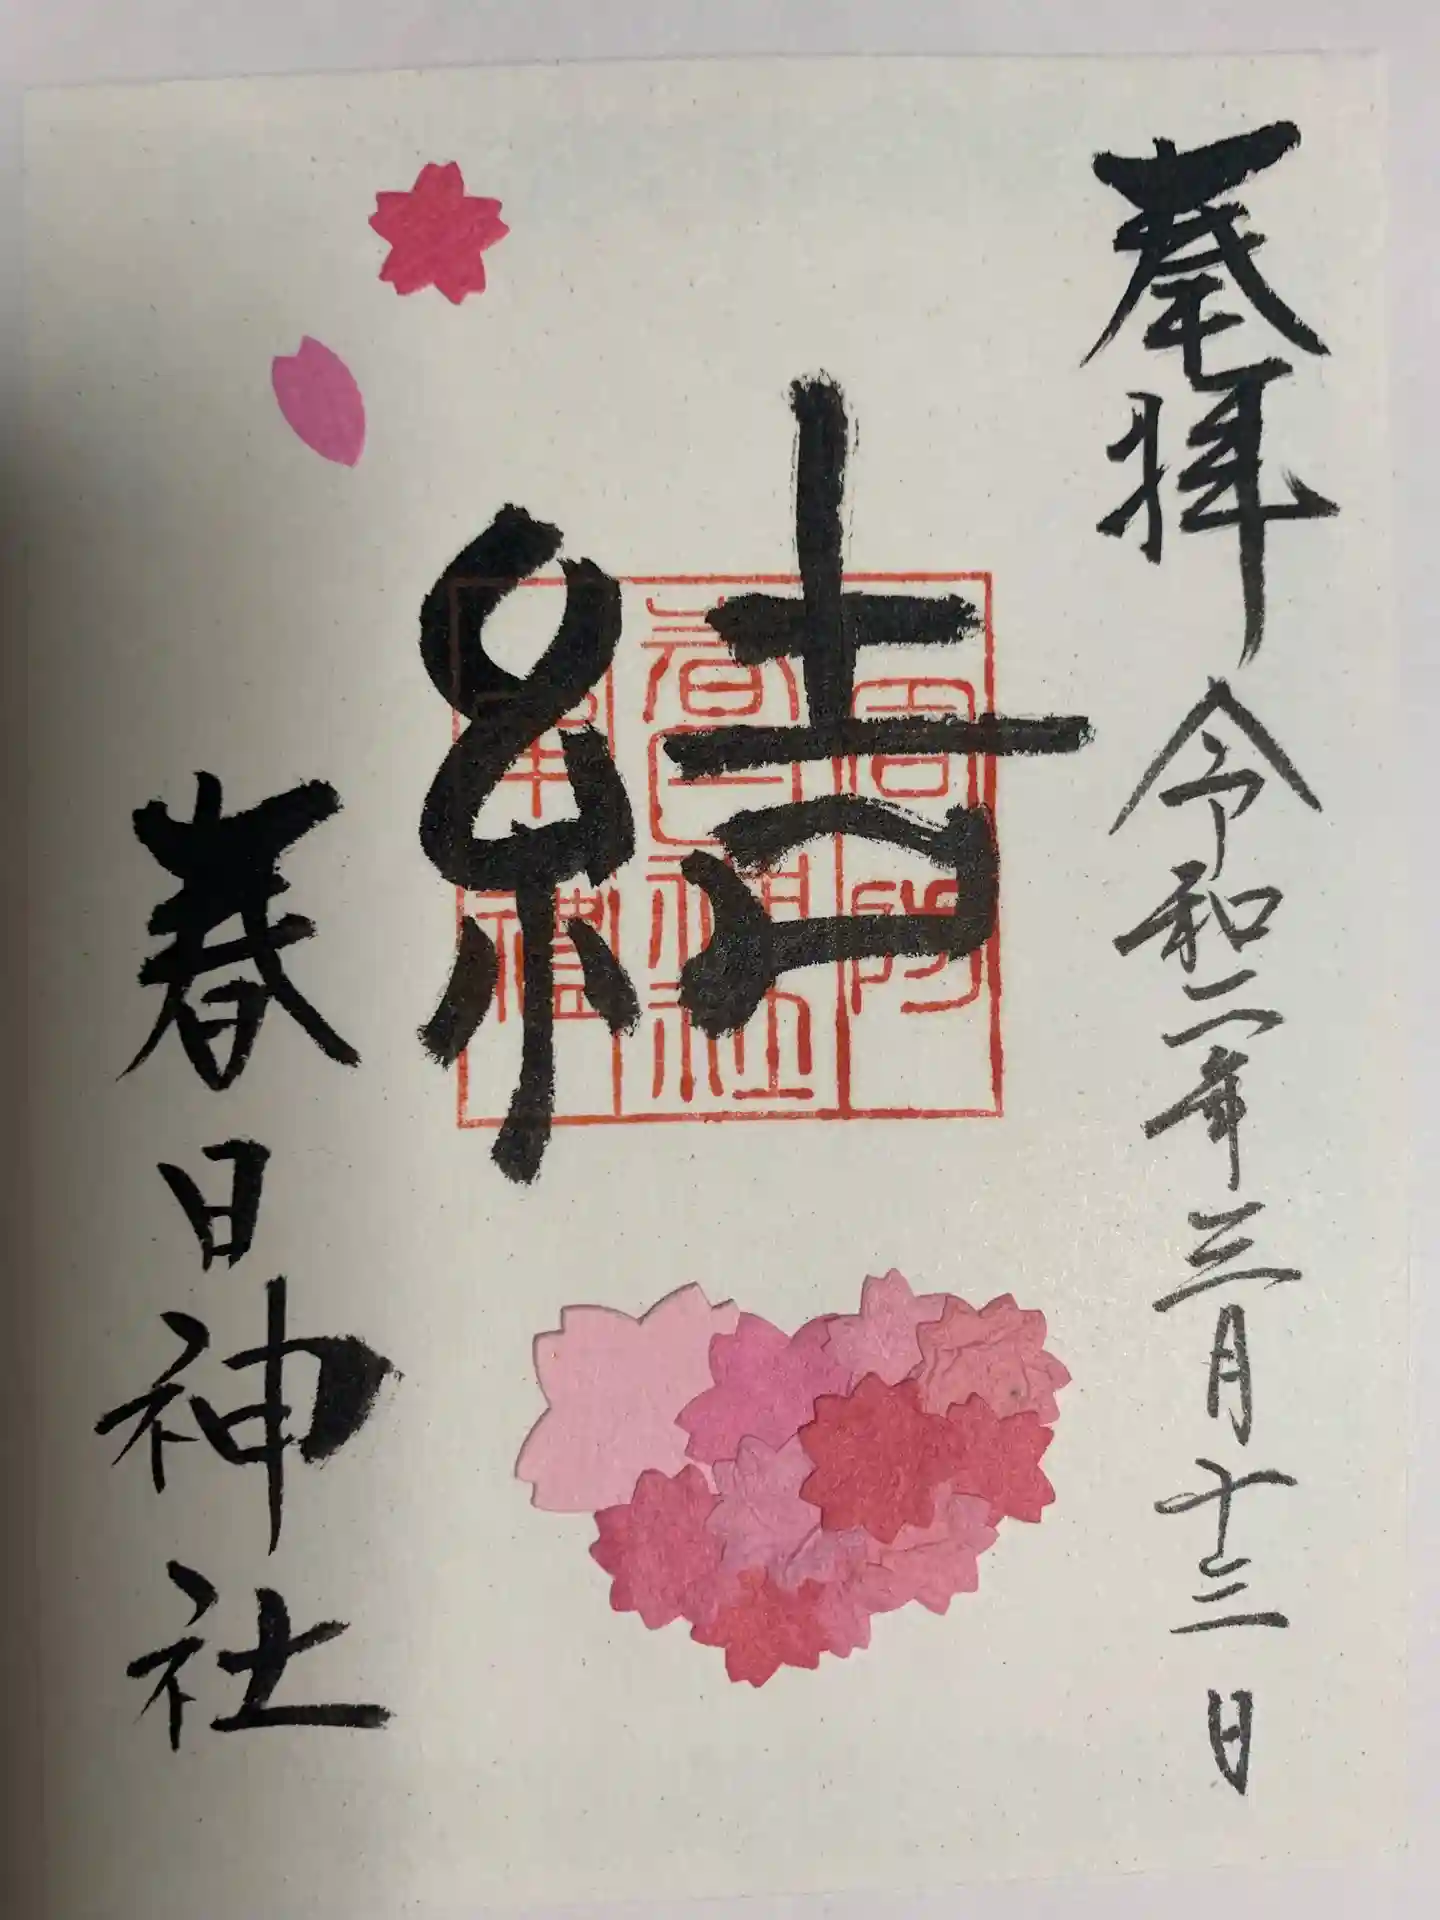 奉拝 令和二年三月十三日
結
春日神社
春日神社